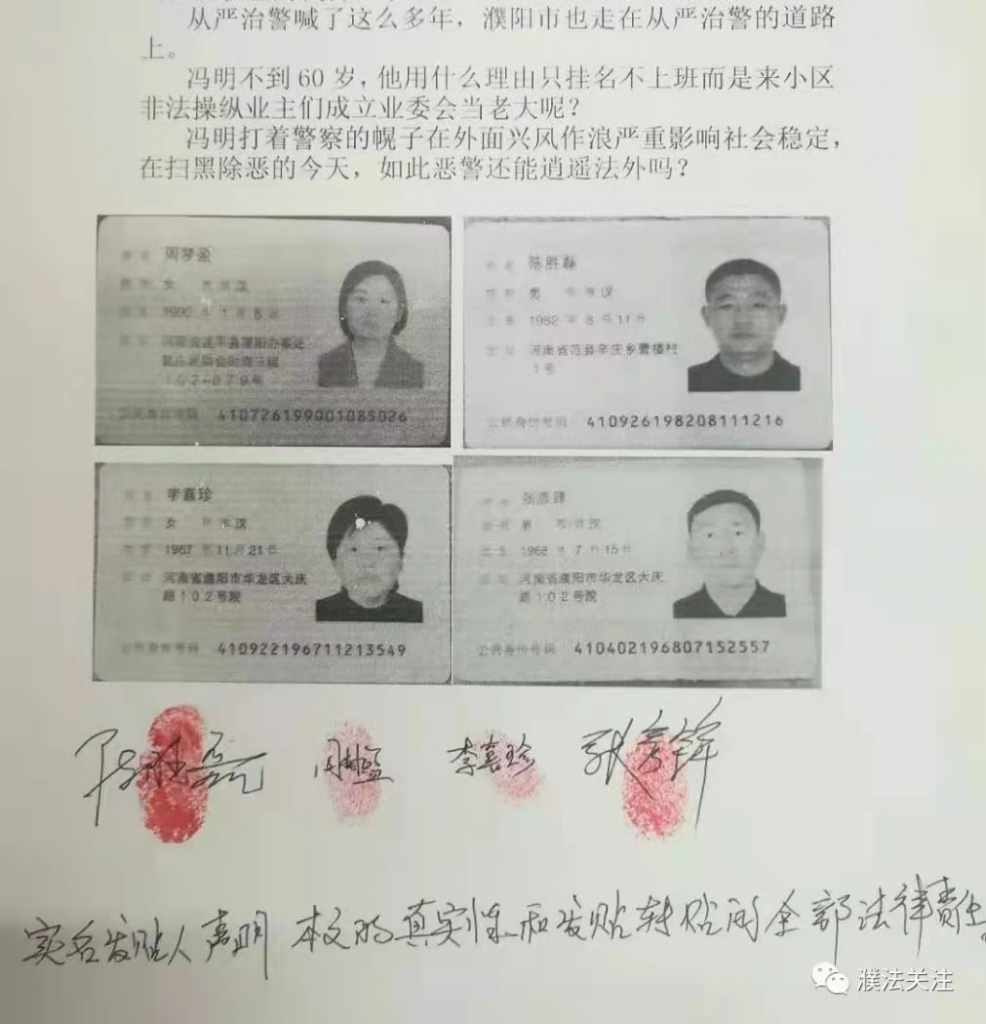 从严治警喊了这么多年，濮阳市也走在从严治警的道路
上。
冯明不到 60 岁，他用什么理由只挂名不上班而是来小区
非法操纵业主们成立业委会当老大呢？
冯明打着警察的幌子在外面兴风作浪严重影响社会稳定，
在扫黑除恶的今天，如此恶警还能逍遥法外吗？
周梦盈
女 汉
1990 年 1 月 8 日
102-879号
公民身份号码 410726199001085026
陈胜磊
男 汉
1982 年 8 月 11 日
河南省范县辛庄乡曹楼村
1号
公民身份号码 410926198208111216
李喜珍
女 汉
1967 年 11 月 21 日
河南省濮阳市华龙区大庆
路102号院
公民身份号码 410922196711213549
男 汉
1968 年 7 月 15 日
河南省濮阳市华龙区大庆
路102号院
公民身份号码 410402196807152557
陈胜磊 周梦盈 李喜珍 张彦锋
实名发贴人声明 本文的真实性和发贴转贴的全部法律责任。
濮法关注